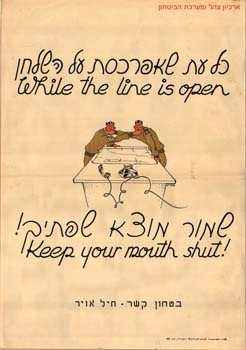 ארכיון צהל ומערכת הביטחון
כל עת שאפרכסת על השלחן
While the line is open
שמור מוצא שפתיך!
Keep your mouth shut!
בטחון קשר · חיל אויר